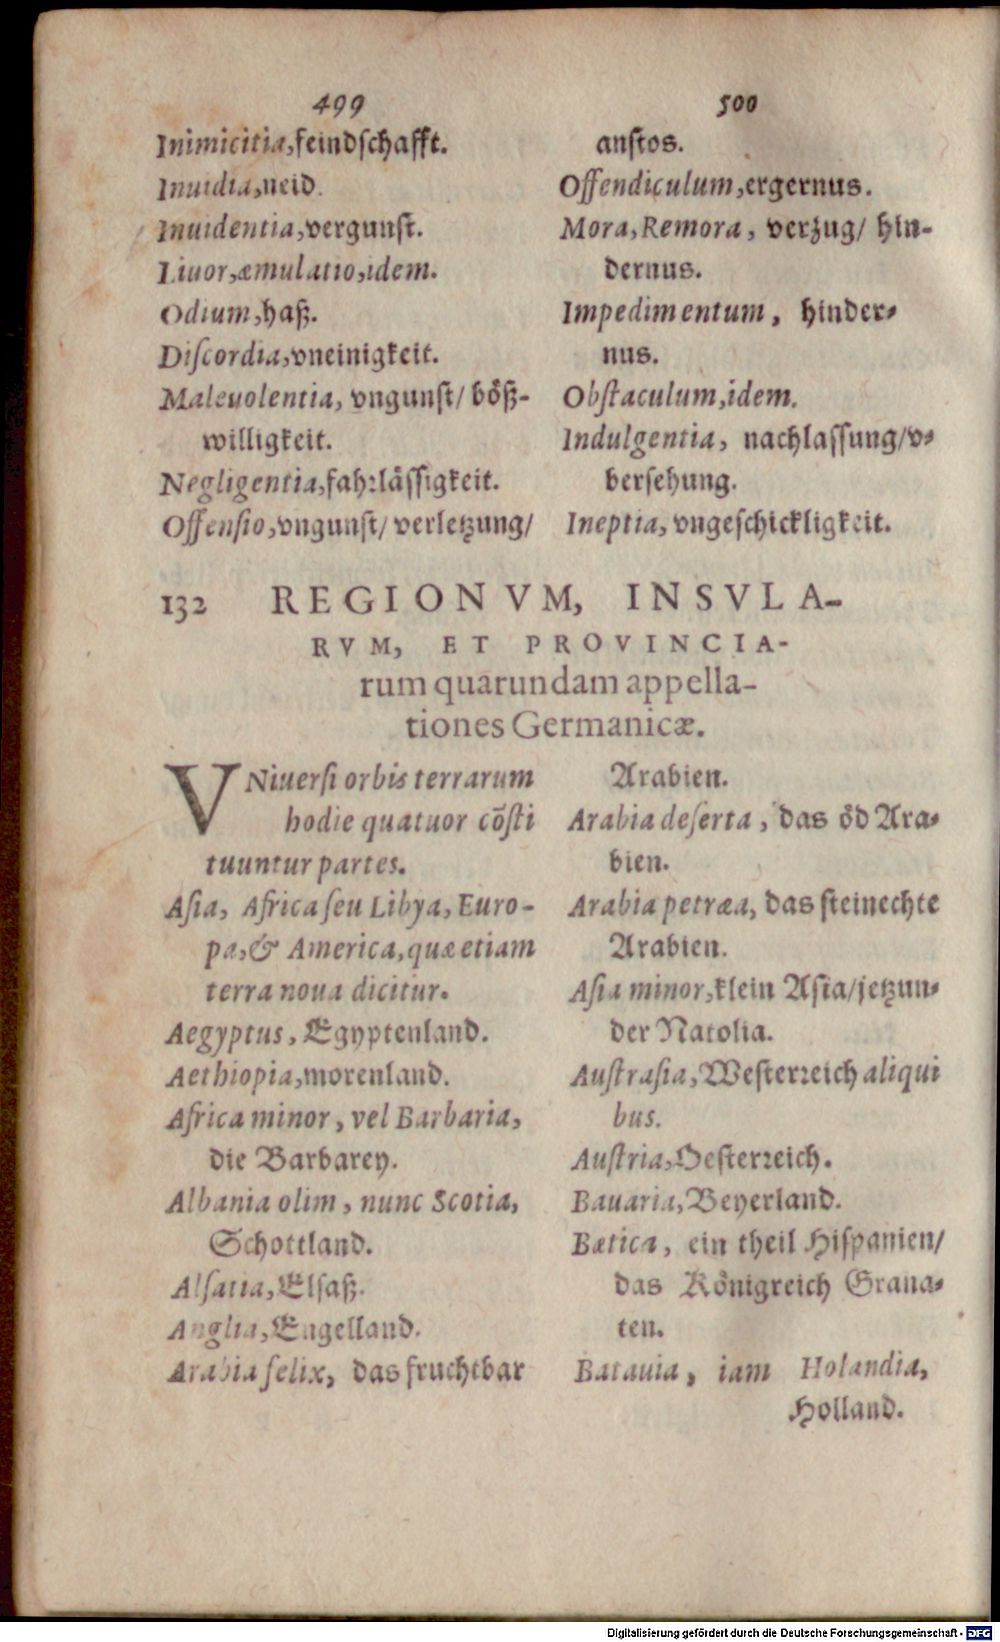 499
Inimicitia,feindschafft.
Inuidia,neid.
Inuidentia,vergunst.
Liuor,æmulatio,idem.
Odium,haß.
Discordia,vneinigkeit.
Maleuolentia, vngunst/ bößwilligkeit.
Negligentia,fahrlässigkeit.
Offensio,vngunst/ verletzung/
500
anstos.
Offendiculum,ergernus.
Mora,Remora, verzug/ hin-
dernus.
Impedimentum, hinder-
nus.
Obstaculum,idem.
Indulgentia, nachlassung/v-
bersehung.
Ineptia, vngeschickligkeit.
132 REGIONVM, INSVLA-
RVM, ET PROVINCIA-
rum quarundam appella-
tiones Germanicæ.
VNiuersi orbis terrarum
hodie quatuor cõsti
tuuntur partes.
Asia, Africa seu Libya, Euro-
pa,& America,quæ etiam
terra noua dicitur.
Aegyptus, Egyptenland.
Aethiopia,morenland.
Africa minor, vel Barbaria,
die Barbarey.
Albania olim, nunc Scotia,
Schottland.
Alsatia,Elsaß.
Anglia,Engelland.
Arabia felix, das fruchtbar
Arabien.
Arabia deserta, das öd Ara-
bien.
Arabia petræa, das steinechte
Arabien.
Asia minor,klein Asia/jetzun-
der Natolia.
Austrasia,Westerreich aliqui
bus.
Austria,Oesterreich.
Bauaria,Beyerland.
Bætica, ein theil Hispanien/
das Königreich Grana-
ten.
Batauia, iam Holandia,
Holland.
Digitalisierung gefördert durch die Deutsche Forschungsgemeinschaft - DFG